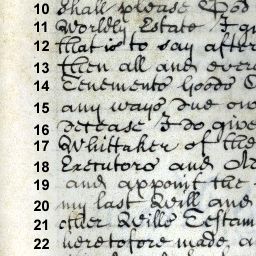 10 shall please God
11 Worldly Estate I gi
12 that is to say after
13 then all and every
14 Tenements Goods C
15 any ways due ow
16 decease I do give
17 Whittaker of the
18 Executors and Or
19 and appoint the
20 my last Will and
21 other Wills Testam
22 heretofore made, a